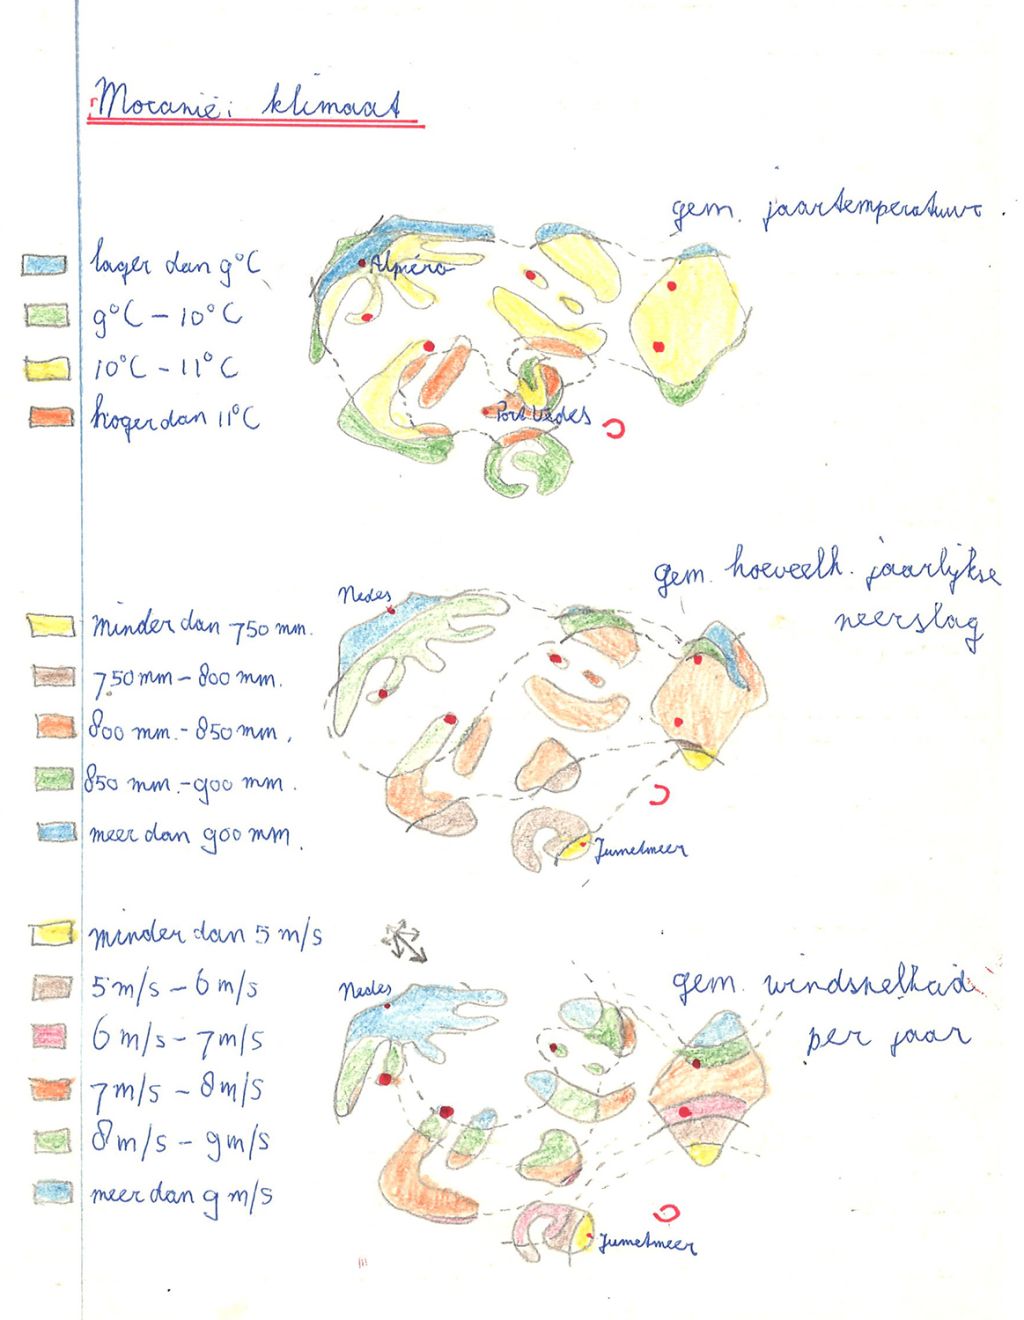 Mocanië: klimaat
gem. jaartemperatuur.
lager dan 9°C
9°C - 10°C
10°C - 11°C
hoger dan 11°C
Alpiéro
Port Vedes
gem. hoeveelh. jaarlijkse
neerslag
Nedes
minder dan 750 mm.
750 mm - 800 mm.
800 mm. - 850 mm.
850 mm. - 900 mm.
meer dan 900 mm.
Jumetmeer
minder dan 5 m/s
5 m/s - 6 m/s
6 m/s - 7 m/s
7 m/s - 8 m/s
8 m/s - 9 m/s
meer dan 9 m/s
Nedes
gem. windsnelheid
per jaar
Jumetmeer